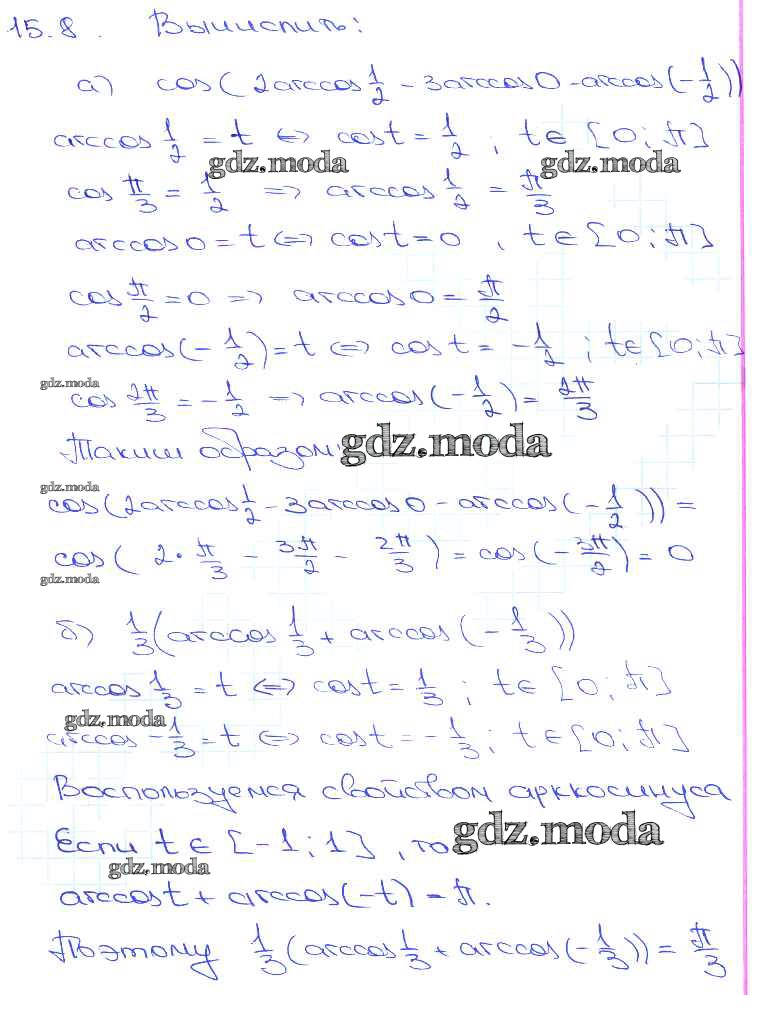 15.8. Вычислить:
а) cos(2arccos 1/2 - 3arccos0 - arccos(-1/2))
arccos 1/2 = t ⇔ cost = 1/2 ; t∈[0;π]
gdz.moda gdz.moda
cos π/3 = 1/2 ⇒ arccos 1/2 = π/3
arccos0 = t ⇔ cost = 0 , t∈[0;π]
cos π/2 = 0 ⇒ arccos0 = π/2
arccos(-1/2) = t ⇔ cost = -1/2 ; t∈[0;π]
gdz.moda
cos 2π/3 = -1/2 ⇒ arccos(-1/2) = 2π/3
Таким образом: gdz.moda
gdz.moda
cos(2arccos 1/2 - 3arccos0 - arccos(-1/2)) =
cos(2·π/3 - 3π/2 - 2π/3) = cos(-3π/2) = 0
gdz.moda
б) 1/3(arccos 1/3 + arccos(-1/3))
arccos 1/3 = t ⇔ cost = 1/3 ; t∈[0;π]
gdz.moda
arccos -1/3 = t ⇔ cost = -1/3 ; t∈[0;π]
Воспользуемся свойством арккосинуса
Если t∈[-1;1], то gdz.moda
gdz.moda
arccost + arccos(-t) = π.
Поэтому 1/3(arccos 1/3 + arccos(-1/3)) = π/3